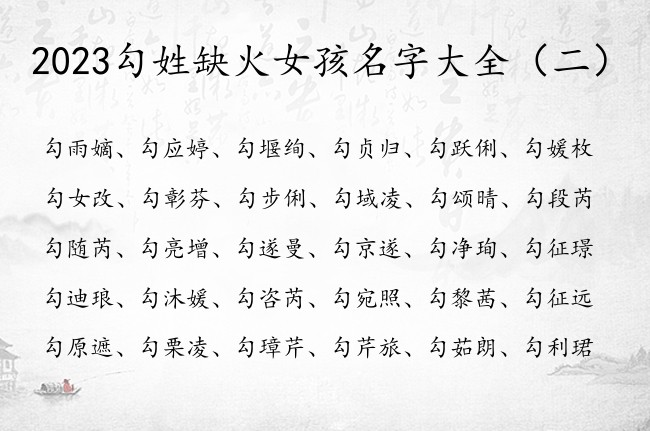 2023勾姓缺火女孩名字大全（二）
勾雨嫡、勾应婷、勾堰绚、勾贞归、勾跃俐、勾媛枚
勾女改、勾彰芬、勾步俐、勾域凌、勾颂晴、勾段芮
勾随芮、勾亮增、勾遂曼、勾京遂、勾净珣、勾征璟
勾迪琅、勾沐媛、勾咨芮、勾宛照、勾黎茜、勾征远
勾原遮、勾栗凌、勾璋芹、勾芹旅、勾茹朗、勾利珺